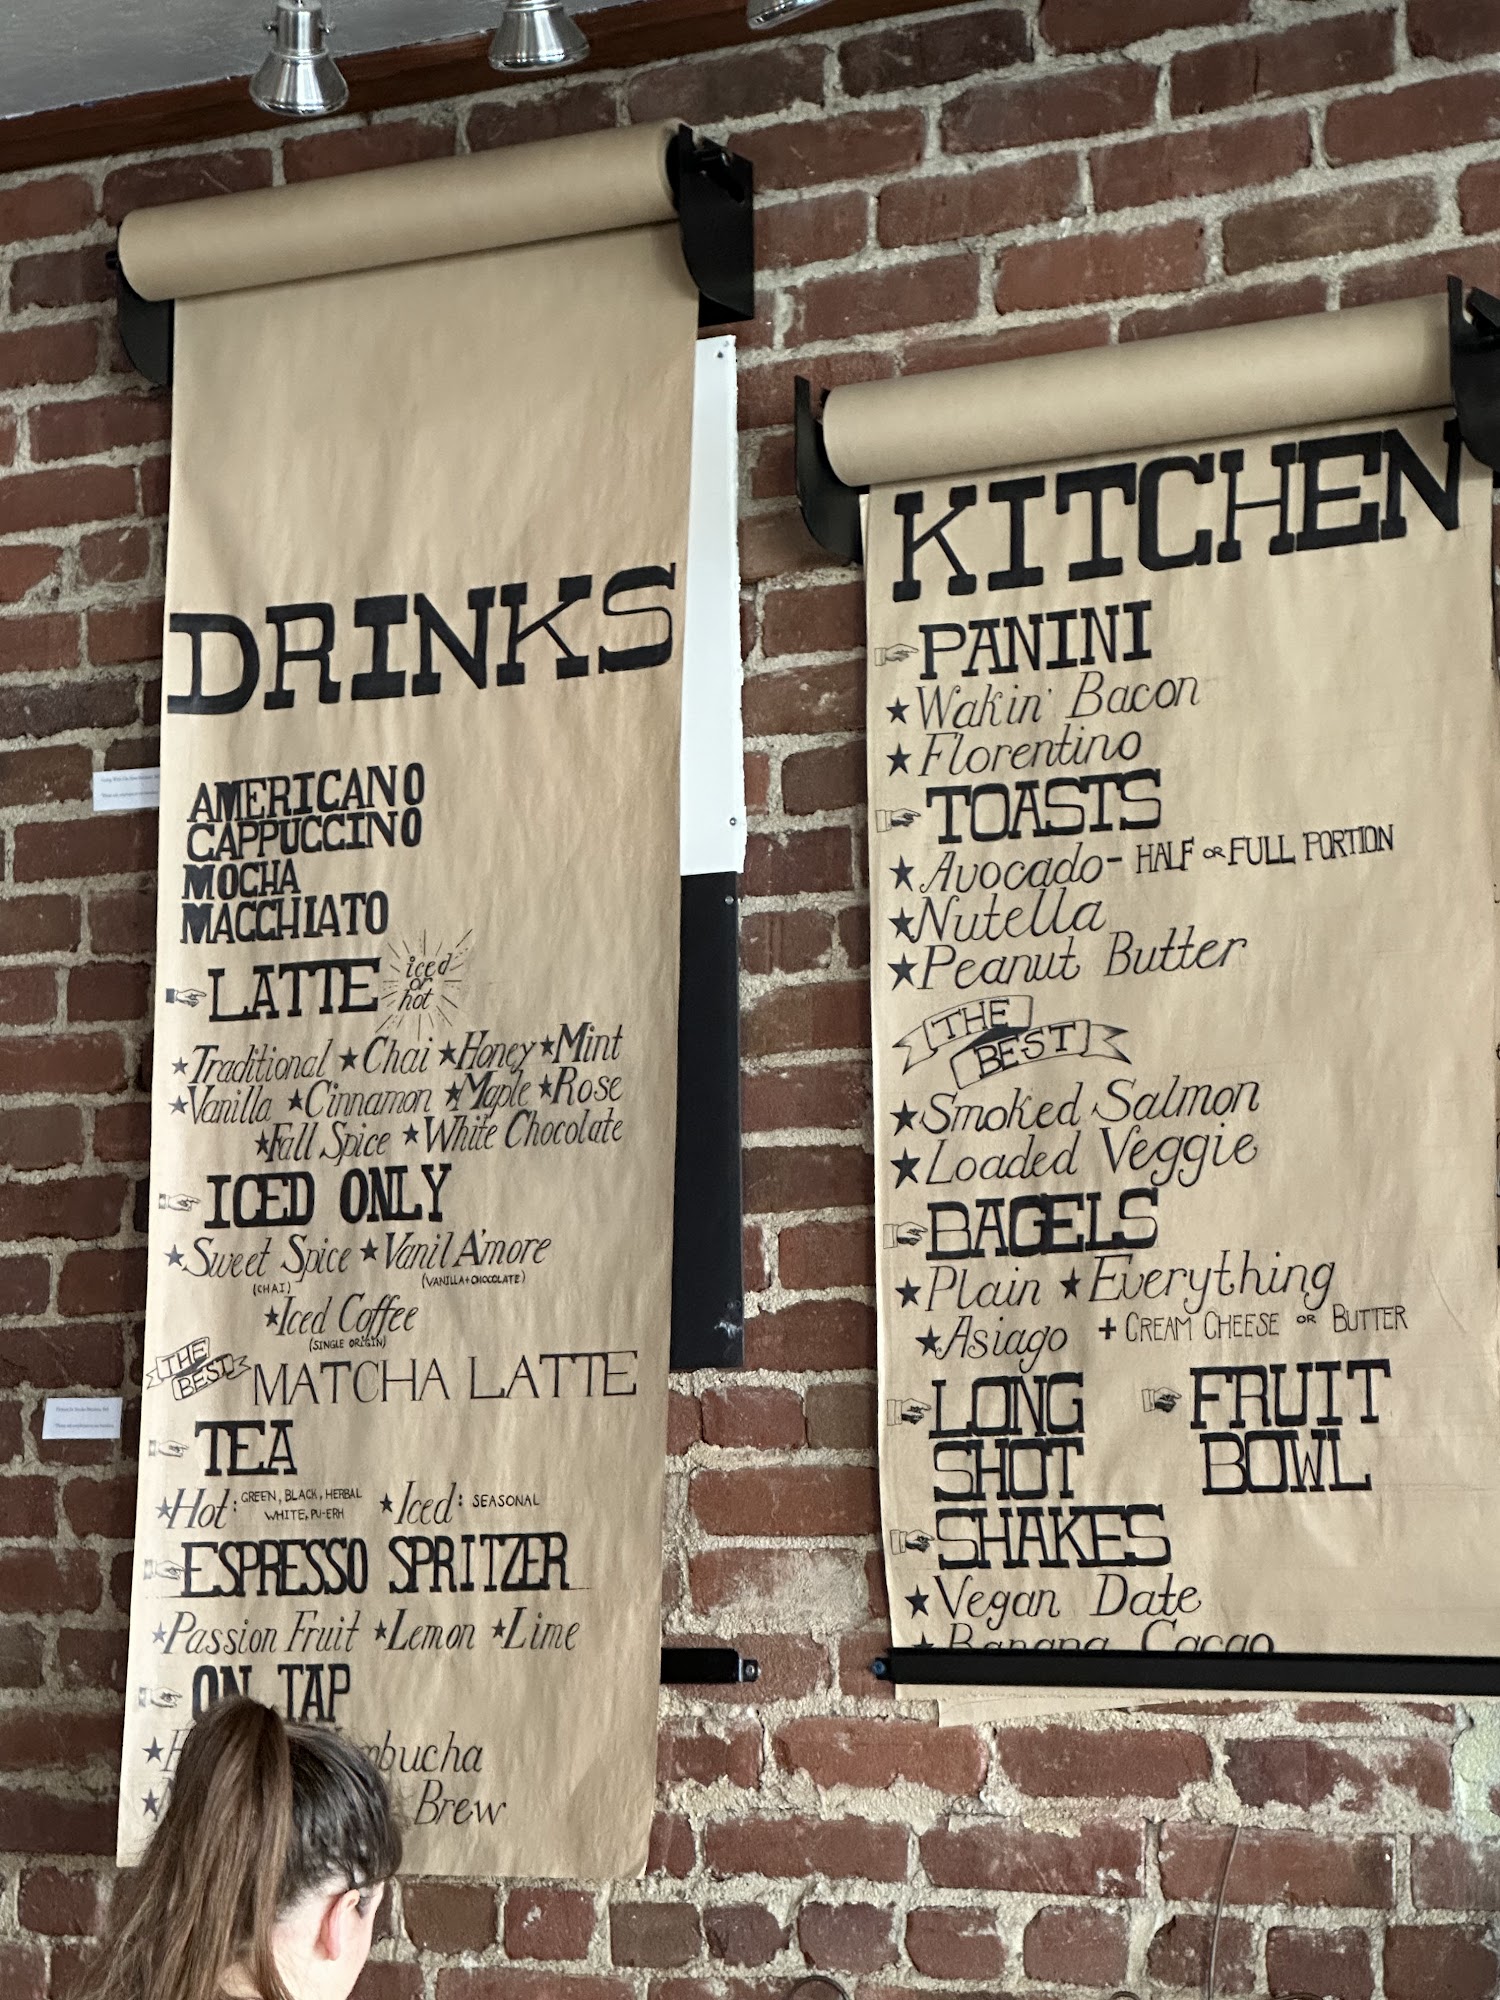 DRINKS
AMERICANO
CAPPUCCINO
MOCHA
MACCHIATO
LATTE
iced
or
hot
★Traditional ★Chai ★Honey ★Mint
★Vanilla ★Cinnamon ★Maple ★Rose
★Fall Spice ★White Chocolate
ICED ONLY
★Sweet Spice ★Vanil A'more
(CHAI) (VANILLA+CHOCOLATE)
★Iced Coffee
(SINGLE ORIGIN)
THE
BEST
MATCHA LATTE
TEA
★Hot: GREEN, BLACK, HERBAL
WHITE, PU-ERH
★Iced: SEASONAL
ESPRESSO SPRITZER
★Passion Fruit ★Lemon ★Lime
ON TAP
Brew
KITCHEN
PANINI
★Wakin' Bacon
★Florentino
TOASTS
★Avocado- HALF OR FULL PORTION
★Nutella
★Peanut Butter
THE
BEST
★Smoked Salmon
★Loaded Veggie
BAGELS
★Plain ★Everything
★Asiago + CREAM CHEESE OR BUTTER
LONG
SHOT
FRUIT
BOWL
SHAKES
★Vegan Date
★Banana Cacao